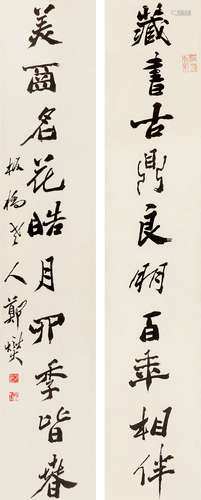 藏書古鼎良朋百年相伴
美畫名花皓月四季皆春
板橋老人鄭燮